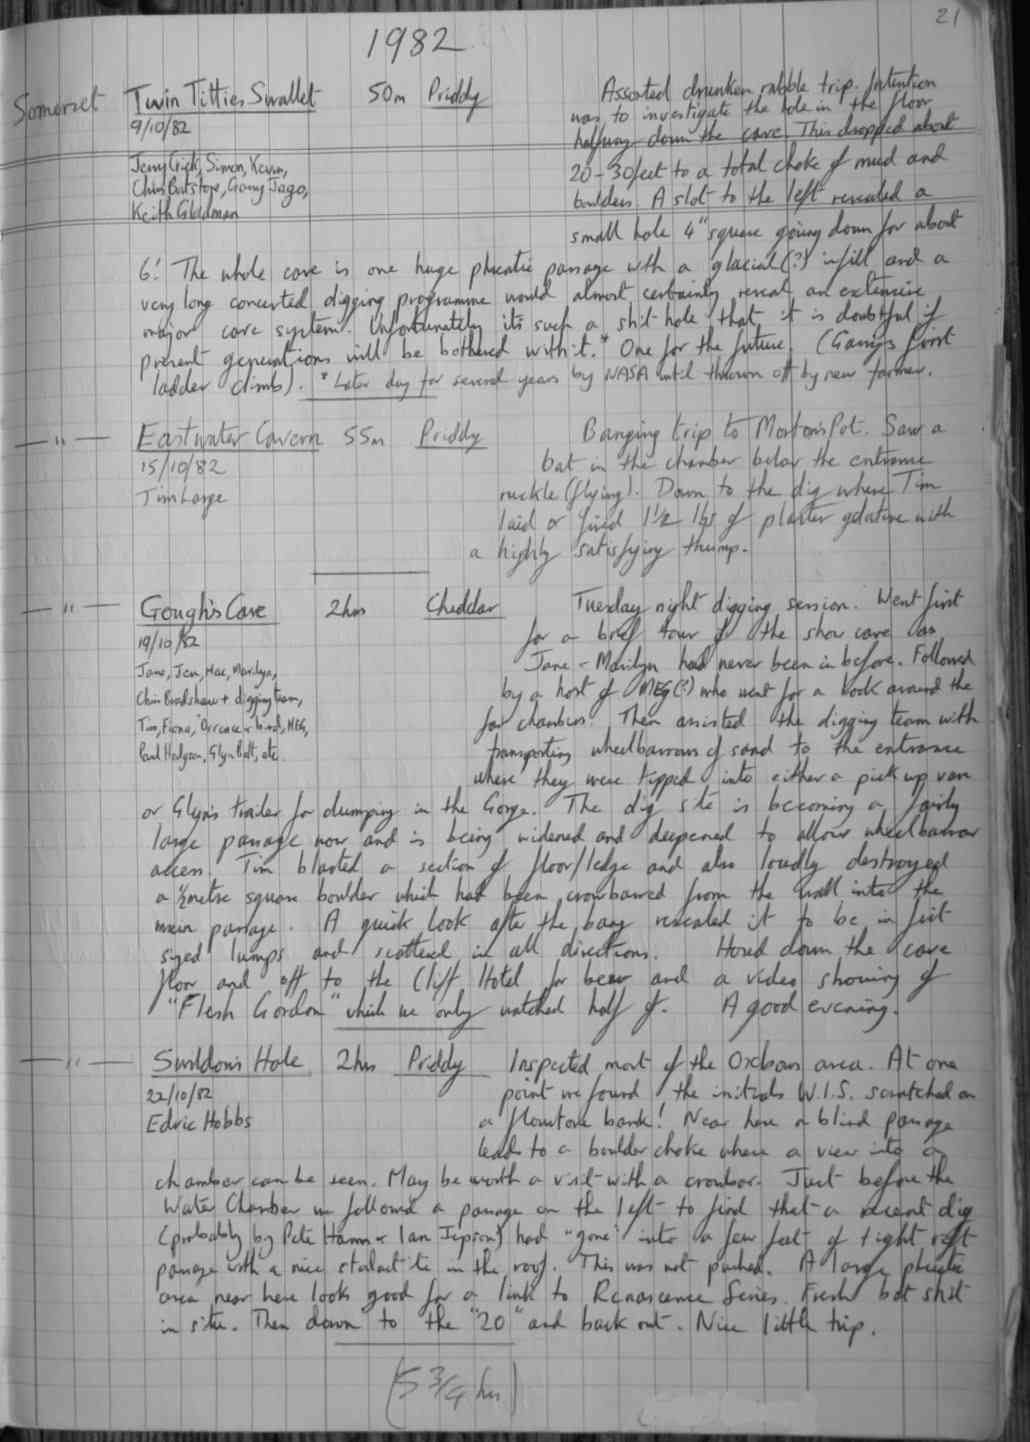 21
1982
Somerset
Twin Titties Swallet 50m Priddy
9/10/82
Jerry Crick, Simon, Kevin,
Chris Batstone, Garry Jago,
Keith Gladman
Assorted drunken rabble trip. Intention
was to investigate the hole in the floor
halfway down the cave. This dropped about
20-30 feet to a total choke of mud and
boulders. A slot to the left revealed a
small hole 4" square going down for about
6'. The whole cave is one huge phreatic passage with a glacial (?) infill and a
very long concerted digging programme would almost certainly reveal an extensive
major cave system. Unfortunately its such a shit hole that it is doubtful if
present generations will be bothered with it.* One for the future. (Garry's first
ladder climb). * Later dug for several years by NASA until thrown off by new farmer.
— " — Eastwater Cavern 55m Priddy
15/10/82
Tim Large
Banging trip to Morton's Pot. Saw a
bat in the chamber below the entrance
ruckle (flying). Down to the dig where Tim
laid or fired 1½ lbs of plaster gelatine with
a highly satisfying thump.
— " — Gough's Cave 2hrs Cheddar
19/10/82
Jane, Jen, Mac, Marilyn,
Chris Bradshaw + digging team,
Tim, Fiona, + bird, MEG,
Paul Hodgson, Glyn Bolt, etc.
Tuesday night digging session. Went first
for a brief tour of the show cave as
Jane + Marilyn had never been in before. Followed
by a host of MEG(?) who went for a look around the
far chambers. Then assisted the digging team with
transporting wheelbarrows of sand to the entrance
where they were tipped into either a pick up van
or Glyn's trailer for dumping in the Gorge. The dig site is becoming a fairly
large passage now and is being widened and deepened to allow wheelbarrow
access. Tim blasted a section of floor/ledge and also loudly destroyed
a ½ metre square boulder which had been crowbarred from the wall into the
main passage. A quick look after the bang revealed it to be in fist
sized lumps and scattered in all directions. Hosed down the cave
floor and off to the Cliff Hotel for beer and a video showing of
"Flesh Gordon" which we only watched half of. A good evening.
— " — Swildon's Hole 2hrs Priddy
22/10/82
Edric Hobbs
Inspected most of the Oxbows area. At one
point we found the initials W.I.S. scratched on
a flowstone bank! Near here a blind passage
leads to a boulder choke where a view into a
chamber can be seen. May be worth a visit with a crowbar. Just before the
Water Chamber we followed a passage on the left to find that a recent dig
(probably by Pete Hann + Ian Jepson) had "gone" into a few feet of tight rift
passage with a nice stalactite in the roof. This was not pushed. A large phreatic
area near here looks good for a link to Renascence Series. Fresh bat shit
in situ. Then down to the "20" and back out. Nice little trip.
(5 3/4 hrs)